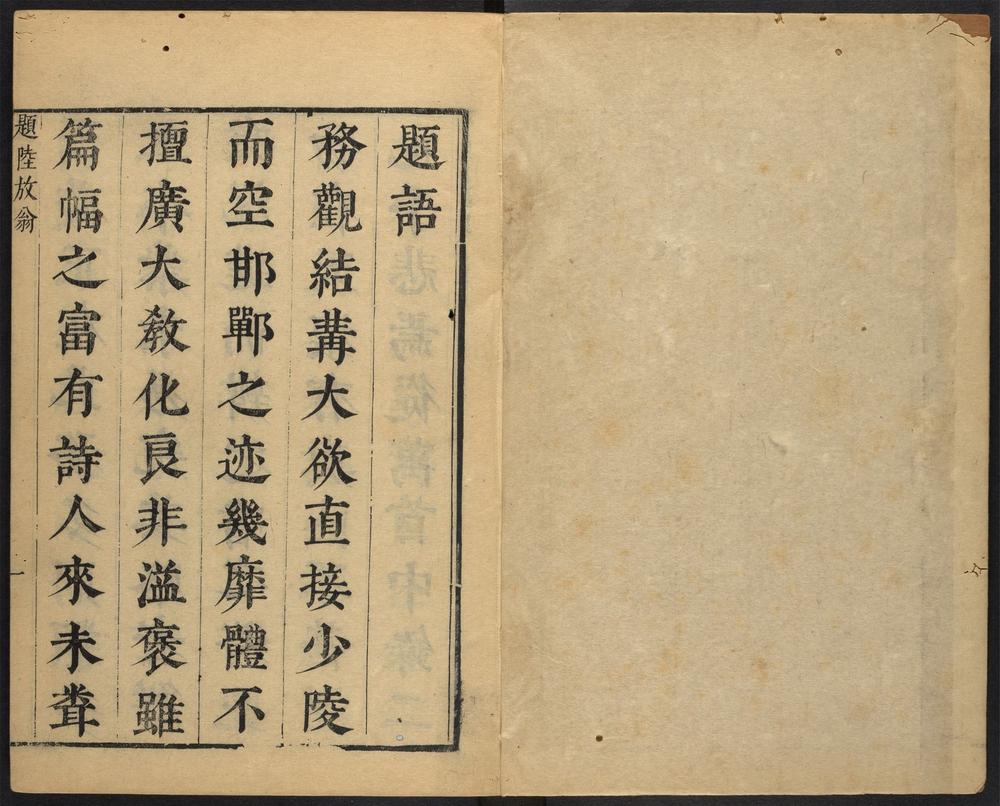 題語
務觀結冓大欲直接少陵
而空邯鄲之迹幾靡體不
擅廣大敎化良非溢褒雖
篇幅之富有詩人來未聳
題陸放翁